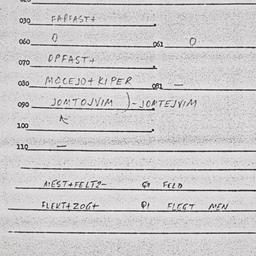 030 FARFAST+
060 0 061 0
070 OPFAST+
080 MOCEJO+ KIPER 081 —
090 JOMTOJVIM )-JOMTEJVIM
100
110 —
MEST+FELT2- FELD
FLEKT+ZOG+ FLEGT MEN